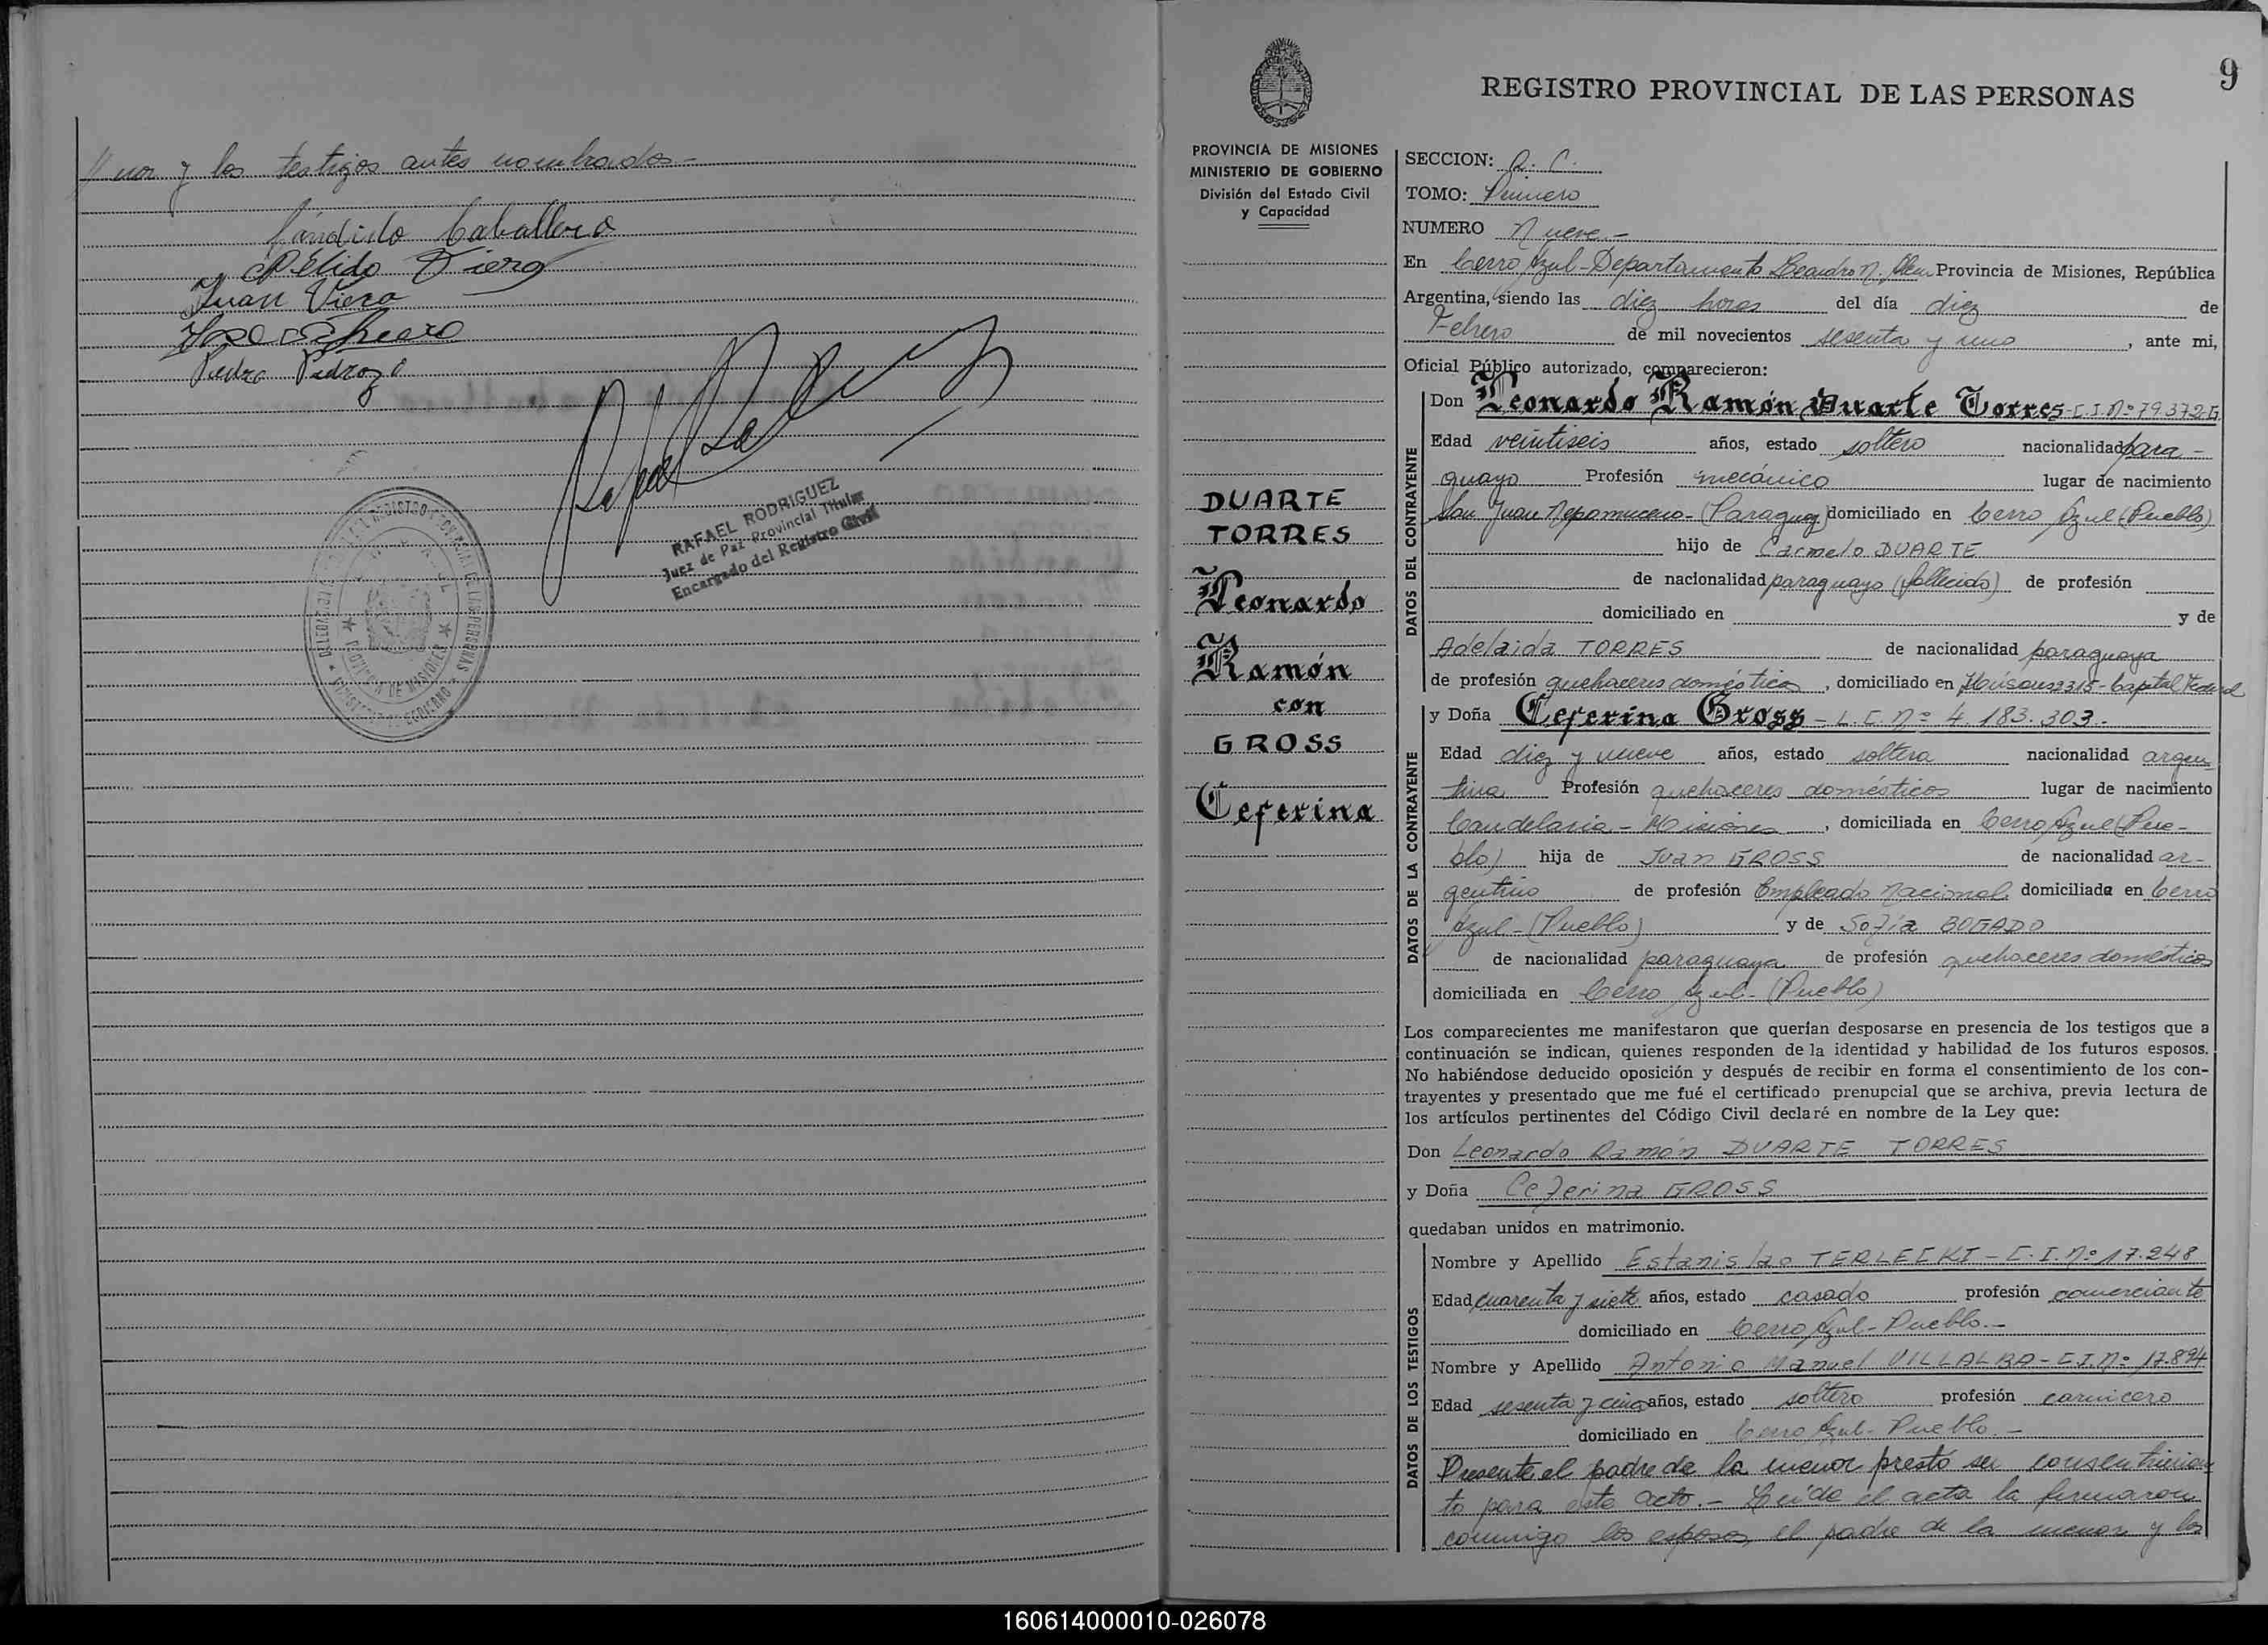 // nor y los testigos antes nombrados -
Cándido Caballero
Elido Viera
Juan Viera
Pedro Pedrozo
RAFAEL RODRIGUEZ
Juez de Paz Provincial Titular
Encargado del Registro Civil
PROVINCIA DE MISIONES
9
REGISTRO PROVINCIAL DE LAS PERSONAS
PROVINCIA DE MISIONES
MINISTERIO DE GOBIERNO
División del Estado Civil
y Capacidad
DUARTE
TORRES
Leonardo
Ramón
con
GROSS
Ceferina
SECCION: R. C.
TOMO: Primero
NUMERO Nueve.-
En Cerro Azul-Departamento Leandro N. Alem Provincia de Misiones, República
Argentina, siendo las diez horas del día diez de
Febrero de mil novecientos sesenta y uno, ante mi,
Oficial Público autorizado, comparecieron:
DATOS DEL CONTRAYENTE
Don Leonardo Ramón Duarte Torres-C.I.Nº 79.372-G
Edad veintiseis años, estado soltero nacionalidad para-
guayo Profesión mecánico lugar de nacimiento
San Juan Nepomuceno-(Paraguay) domiciliado en Cerro Azul (Pueblo)
hijo de Carmelo DUARTE
de nacionalidad paraguayo (fallecido) de profesión
domiciliado en y de
Adelaida TORRES de nacionalidad paraguaya
de profesión quehaceres domésticos, domiciliado en 2315-Capital Federal
DATOS DE LA CONTRAYENTE
y Doña Ceferina Gross - L.C.Nº 4.183.303.-
Edad diez y nueve años, estado soltera nacionalidad argen-
tina Profesión quehaceres domésticos lugar de nacimiento
Candelaria - Misiones, domiciliada en Cerro Azul (Pue-
blo) hija de Juan GROSS de nacionalidad ar-
gentino de profesión Empleado Nacional domiciliada en Cerro
Azul-(Pueblo) y de Sofía BOGADO
de nacionalidad paraguaya de profesión quehaceres domésticos
domiciliada en Cerro Azul-(Pueblo)
Los comparecientes me manifestaron que querían desposarse en presencia de los testigos que a
continuación se indican, quienes responden de la identidad y habilidad de los futuros esposos.
No habiéndose deducido oposición y después de recibir en forma el consentimiento de los con-
trayentes y presentado que me fué el certificado prenupcial que se archiva, previa lectura de
los artículos pertinentes del Código Civil declaré en nombre de la Ley que:
Don Leonardo Ramón DUARTE TORRES
y Doña Ceferina GROSS
quedaban unidos en matrimonio.
DATOS DE LOS TESTIGOS
Nombre y Apellido Estanislao TERLECKI - C.I.Nº 17.248
Edad cuarenta y siete años, estado casado profesión comerciante
domiciliado en Cerro Azul-Pueblo.-
Nombre y Apellido Antonio Manuel VILLALBA - C.I.Nº 17.894
Edad sesenta y cinco años, estado soltero profesión carnicero
domiciliado en Cerro Azul-Pueblo.-
Presente el padre de la menor prestó su consentimien
to para este acto.- Leída el acta la firmaron
conmigo los esposos, el padre de la menor y los
160614000010-026078